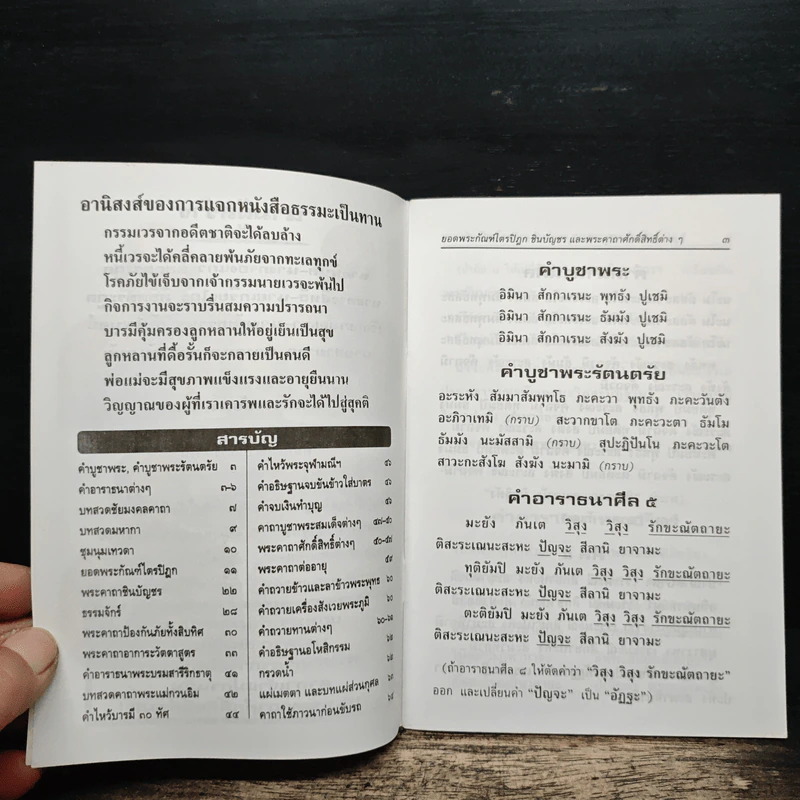 อานิสงส์ของการแจกหนังสือธรรมะเป็นทาน
กรรมเวรจากอดีตชาติจะได้ลบล้าง
หนี้เวรจะได้คลี่คลายพ้นภัยจากทะเลทุกข์
โรคภัยไข้เจ็บจากเจ้ากรรมนายเวรจะพ้นไป
กิจการงานจะราบรื่นสมความปรารถนา
บารมีคุ้มครองลูกหลานให้อยู่เย็นเป็นสุข
ลูกหลานที่ดื้อรั้นก็จะกลายเป็นคนดี
พ่อแม่จะมีสุขภาพแข็งแรงและอายุยืนนาน
วิญญาณของผู้ที่เราเคารพและรักจะได้ไปสู่สุคติ
สารบัญ
คำบูชาพระ, คำบูชาพระรัตนตรัย ๓
คำอาราธนาต่างๆ ๓-๖
บทสวดชัยมงคลคาถา ๗
บทสวดมหากา ๙
ชุมนุมเทวดา ๑๐
ยอดพระกัณฑ์ไตรปิฎก ๑๑
พระคาถาชินบัญชร ๒๒
ธรรมจักร์ ๒๘
พระคาถาป้องกันภัยทั้งสิบทิศ ๓๐
พระคาถาอาการะวัตตาสูตร ๓๓
คำอาราธนาพระบรมสารีริกธาตุ ๔๑
บทสวดคาถาพระแม่กวนอิม ๔๒
คำไหว้บารมี ๓๐ ทัศ ๔๔
คำไหว้พระจุฬามณีฯ
คำอธิษฐานจบขันข้าวใส่บาตร
คำจบเงินทำบุญ
คาถาบูชาพระสมเด็จต่างๆ
พระคาถาศักดิ์สิทธิ์ต่างๆ
พระคาถาต่ออายุ
คำถวายข้าวและลาข้าวพระพุทธ
คำถวายเครื่องสังเวยพระภูมิ
คำถวายทานต่างๆ
คำอธิษฐานอโหสิกรรม
กรวดน้ำ
แม่เมตตา และบทแผ่ส่วนกุศล
คาถาใช้ภาวนาก่อนขับรถ
ยอดพระกัณฑ์ไตรปิฎก ชินบัญชร และพระคาถาศักดิ์สิทธิ์ต่าง ๆ ๓
คำบูชาพระ
อิมินา สักกาเรนะ พุทธัง ปูเชมิ
อิมินา สักกาเรนะ ธัมมัง ปูเชมิ
อิมินา สักกาเรนะ สังฆัง ปูเชมิ
คำบูชาพระรัตนตรัย
อะระหัง สัมมาสัมพุทโธ ภะคะวา พุทธัง ภะคะวันตัง
อะภิวาเทมิ (กราบ) สะวากขาโต ภะคะวะตา ธัมโม
ธัมมัง นะมัสสามิ (กราบ) สุปะฏิปันโน ภะคะวะโต
สาวะกะสังโฆ สังฆัง นะมามิ (กราบ)
คำอาราธนาศีล ๕
มะยัง ภันเต วิสุง วิสุง รักขะณัตถายะ
ติสะระเณนะสะหะ ปัญจะ สีลานิ ยาจามะ
ทุติยัมปิ มะยัง ภันเต วิสุง วิสุง รักขะณัตถายะ
ติสะระเณนะสะหะ ปัญจะ สีลานิ ยาจามะ
ตะติยัมปิ มะยัง ภันเต วิสุง วิสุง รักขะณัตถายะ
ติสะระเณนะสะหะ ปัญจะ สีลานิ ยาจามะ
(ถ้าอาราธนาศีล ๘ ให้ตัดคำว่า "วิสุง วิสุง รักขะณัตถายะ"
ออก และเปลี่ยนคำ "ปัญจะ" เป็น "อัฏฐะ")